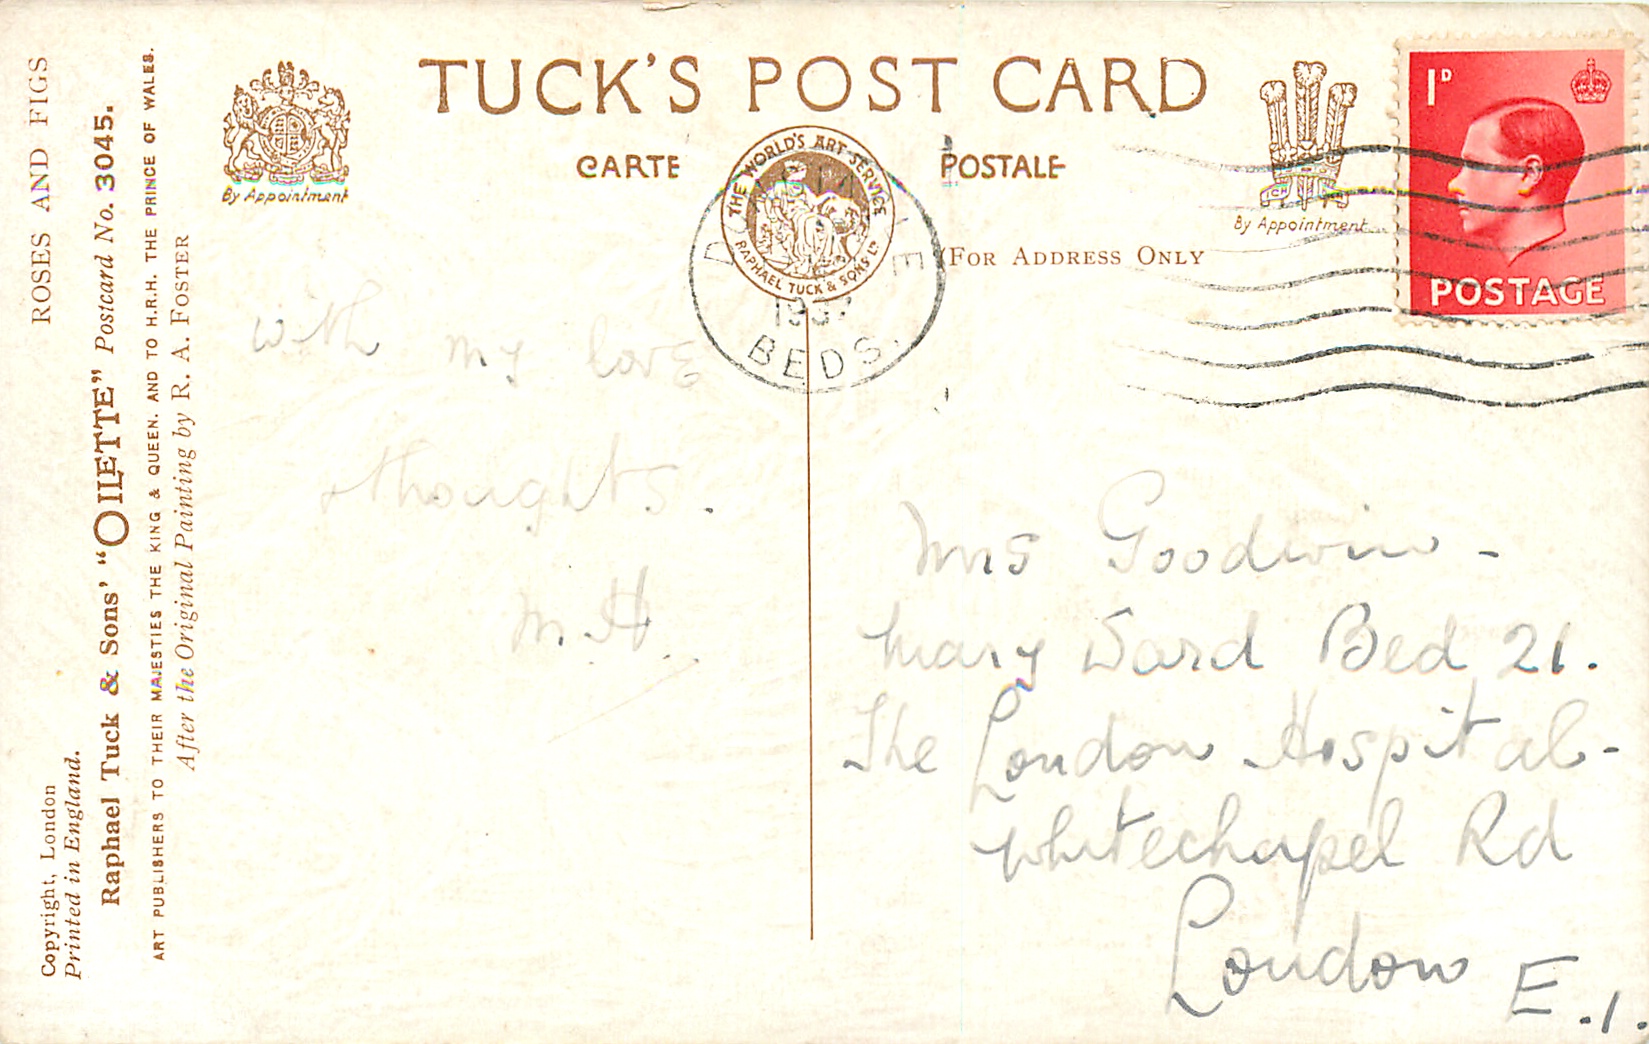 TUCK'S POST CARD
CARTE POSTALE
(FOR ADDRESS ONLY
By Appointment
By Appointment
THE WORLD'S ART SERVICE
RAPHAEL TUCK & SONS LTD
1937
BEDS.
1D
POSTAGE
ROSES AND FIGS
Copyright, London
Printed in England.
Raphael Tuck & Sons' "OILETTE" Postcard No. 3045.
ART PUBLISHERS TO THEIR MAJESTIES THE KING & QUEEN. AND TO H.R.H. THE PRINCE OF WALES.
After the Original Painting by R. A. FOSTER
with my love
+ thoughts.
M. H.
Mrs Goodwin -
Mary Ward Bed 21.
The London Hospital -
Whitechapel Rd
London E.1.